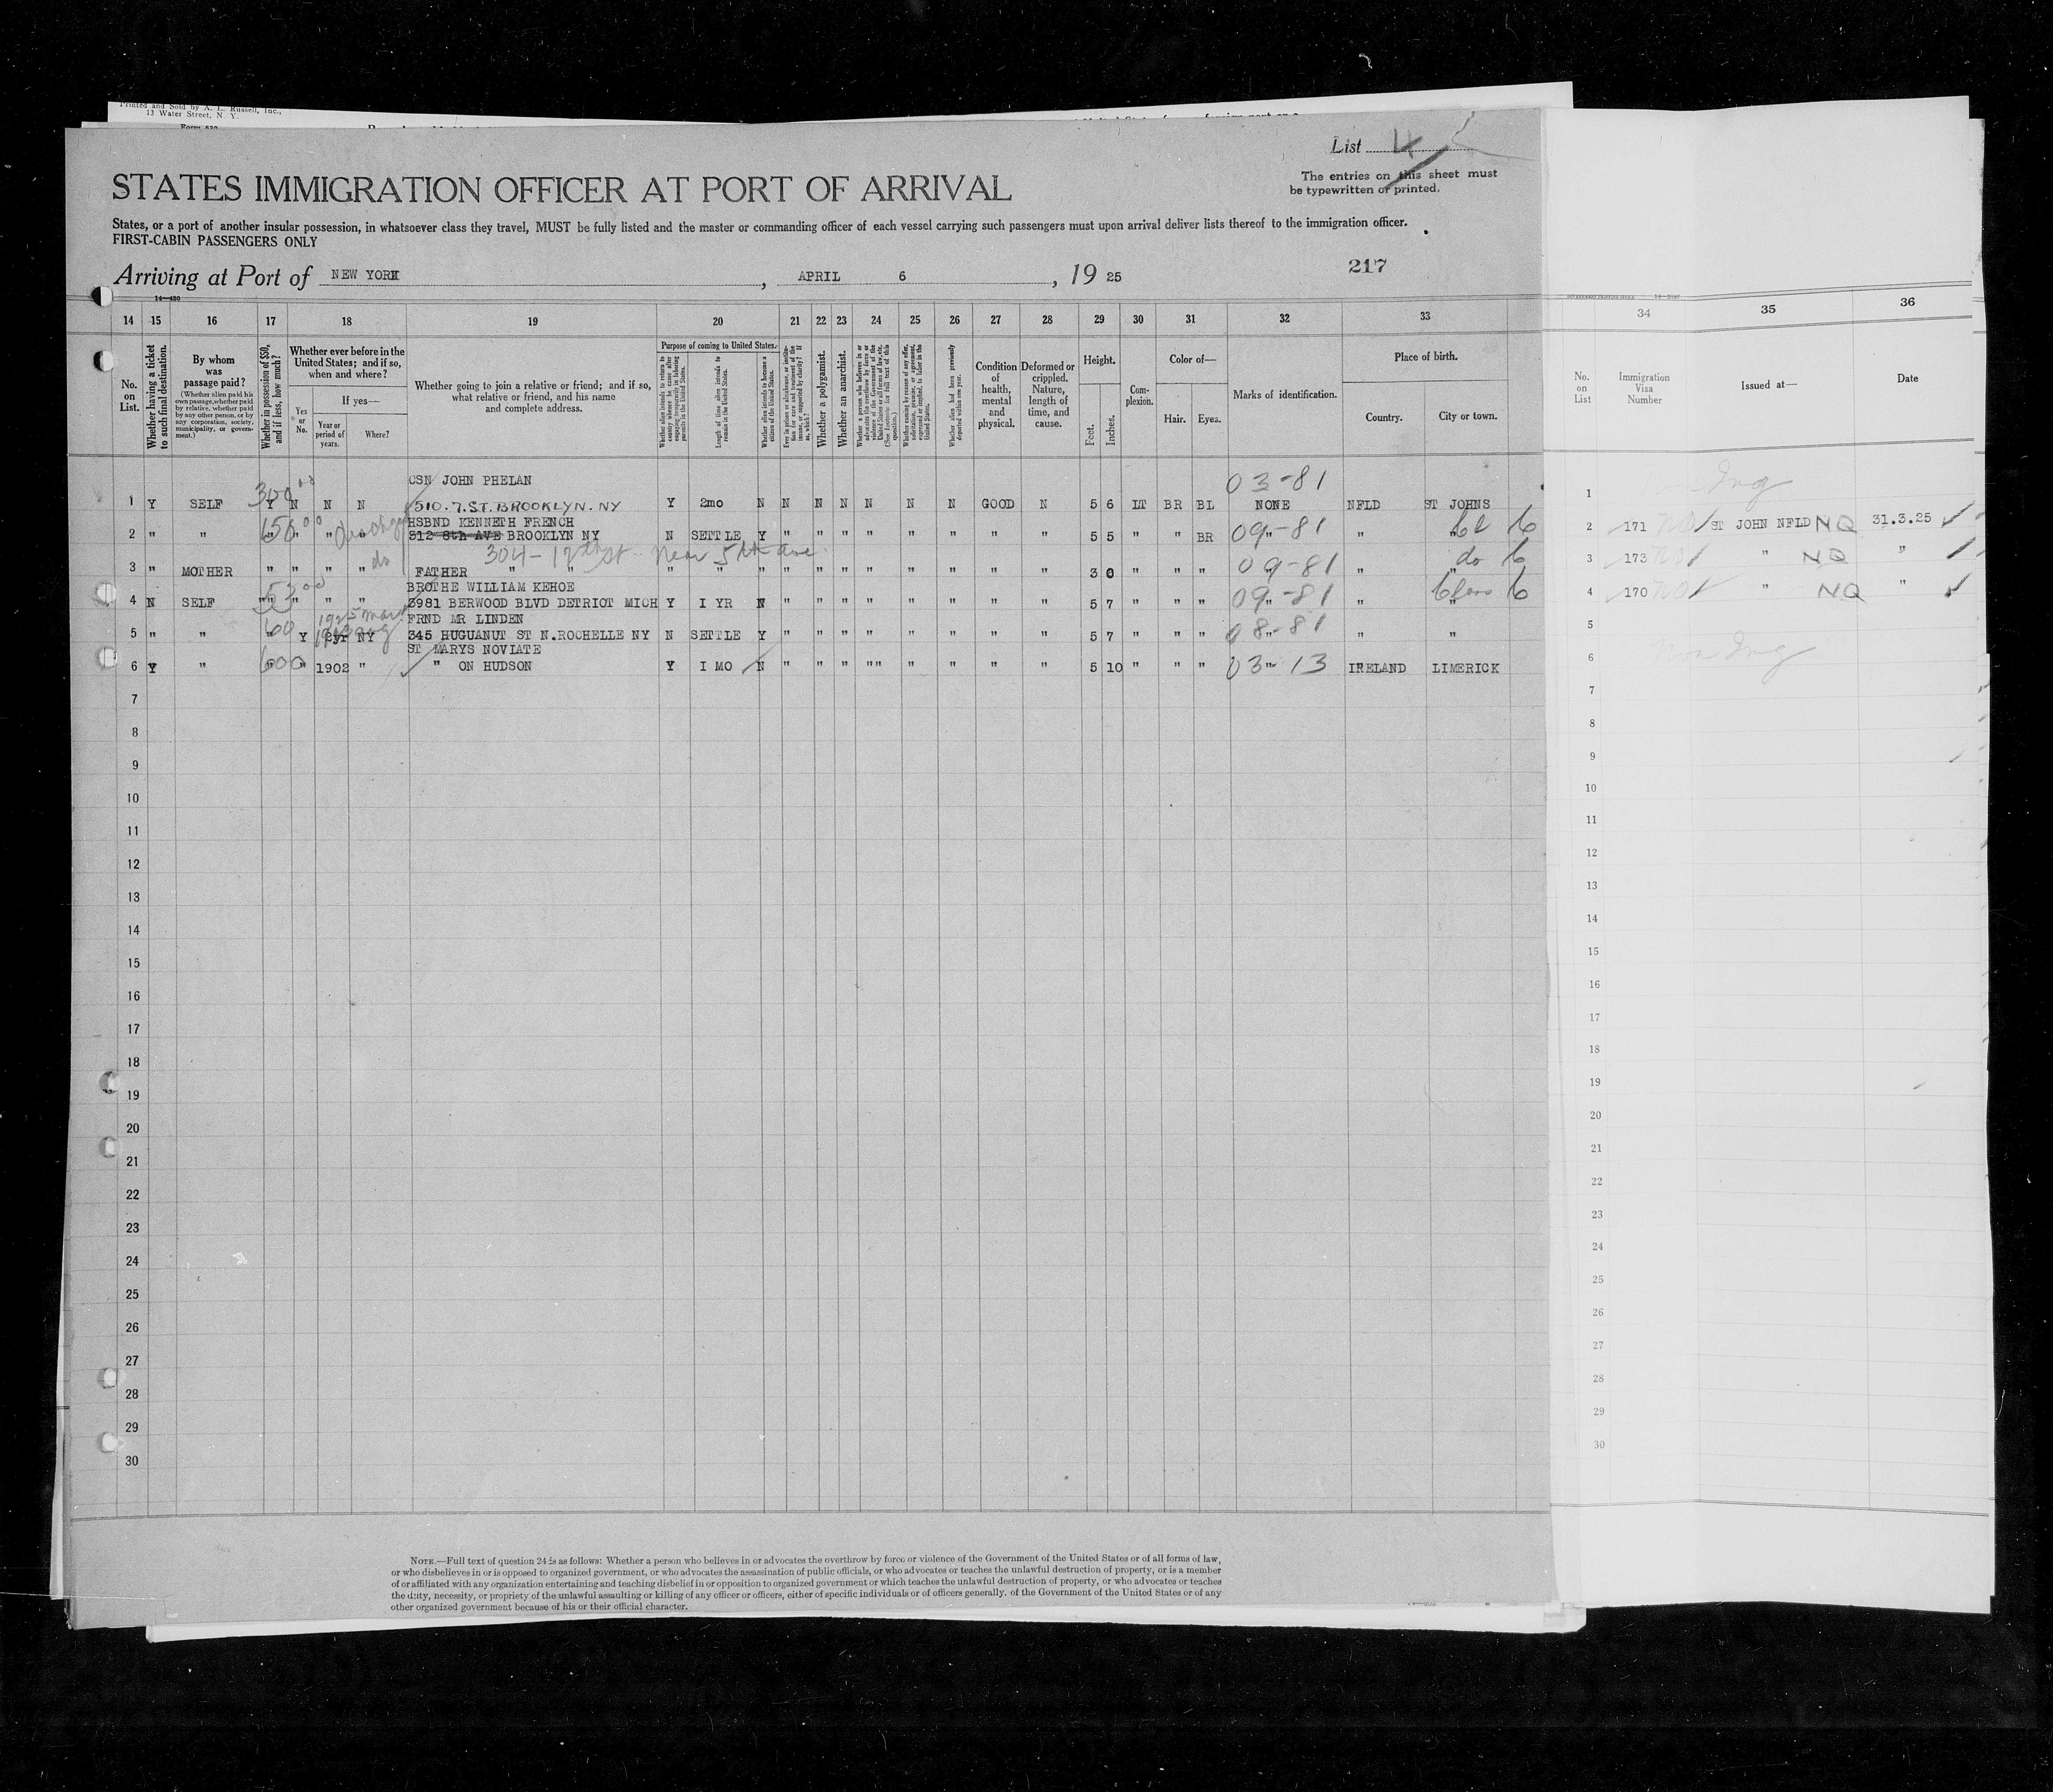 Printed and Sold by A. L. Russell, Inc.,
13 Water Street, N. Y.
Form 630
List 4
The entries on this sheet must
be typewritten or printed.
STATES IMMIGRATION OFFICER AT PORT OF ARRIVAL
States, or a port of another insular possession, in whatsoever class they travel, MUST be fully listed and the master or commanding officer of each vessel carrying such passengers must upon arrival deliver lists thereof to the immigration officer.
FIRST-CABIN PASSENGERS ONLY
Arriving at Port of NEW YORK, APRIL 6, 19 25
217
14—430
14 15 16 17 18 19 20 21 22 23 24 25 26 27 28 29 30 31 32 33 34 35 36
No. on List.
Whether having a ticket to such final destination.
By whom was passage paid?
(Whether alien paid his own passage, whether paid by relative, whether paid by any other person, or by any corporation, society, municipality, or government.)
Whether in possession of $50, and if less, how much?
Whether ever before in the United States; and if so, when and where?
Yes or No.
If yes—
Year or period of years.
Where?
Whether going to join a relative or friend; and if so, what relative or friend, and his name and complete address.
Purpose of coming to United States.
Whether alien intends to return to country whence he came after engaging temporarily in laboring pursuits in the United States.
Length of time alien intends to remain in the United States.
Whether alien intends to become a citizen of the United States.
Whether a polygamist.
Whether an anarchist.
Whether alien had been previously deported within one year.
Condition of health, mental and physical.
Deformed or crippled. Nature, length of time, and cause.
Height.
Feet.
Inches.
Complexion.
Color of—
Hair.
Eyes.
Marks of identification.
Place of birth.
Country.
City or town.
No. on List
Immigration Visa Number
Issued at—
Date
CSN JOHN PHELAN
300 00
03-81
1 Y SELF Y N N N 510.7.ST.BROOKLYN.NY Y 2mo N N N N N N N GOOD N 5 6 LT BR BL NONE NFLD ST JOHNS 1
HSBND KENNETH FRENCH
650 00
2 " " " " " " 312 8th AVE BROOKLYN NY N SETTLE Y " " " " " " " " 5 5 " " BR 09-81 " " 2 171 ST JOHN NFLD NQ 31.3.25
304-12th st. near 5th ave
do
3 " MOTHER " " " " FATHER " " " " " " " " " " " " " " 3 0 " " " 09-81 " do 3 173 " NQ "
BROTHE WILLIAM KEHOE
53 00
4 N SELF "" " " " 3981 BERWOOD BLVD DETRIOT MICH Y I YR N " " " " " " " " 5 7 " " " 09-81 " " 4 170 " NQ "
FRND MR LINDEN
60
5 " " " Y 2yr NY 345 HUGUANUT ST N.ROCHELLE NY N SETTLE Y " " " " " " " " 5 7 " " " 08-81 " " 5
ST MARYS NOVIATE
600
6 Y " " " 1902 " " ON HUDSON Y I MO N " " " "" " " " " 5 10 " " " 03-13 IRELAND LIMERICK 6
7 7
8 8
9 9
10 10
11 11
12 12
13 13
14 14
15 15
16 16
17 17
18 18
19 19
20 20
21 21
22 22
23 23
24 24
25 25
26 26
27 27
28 28
29 29
30 30
NOTE.—Full text of question 24 is as follows: Whether a person who believes in or advocates the overthrow by force or violence of the Government of the United States or of all forms of law,
or who disbelieves in or is opposed to organized government, or who advocates the assassination of public officials, or who advocates or teaches the unlawful destruction of property, or is a member
of or affiliated with any organization entertaining and teaching disbelief in or opposition to organized government or which teaches the unlawful destruction of property, or who advocates or teaches
the duty, necessity, or propriety of the unlawful assaulting or killing of any officer or officers, either of specific individuals or of officers generally, of the Government of the United States or of any
other organized government because of his or their official character.